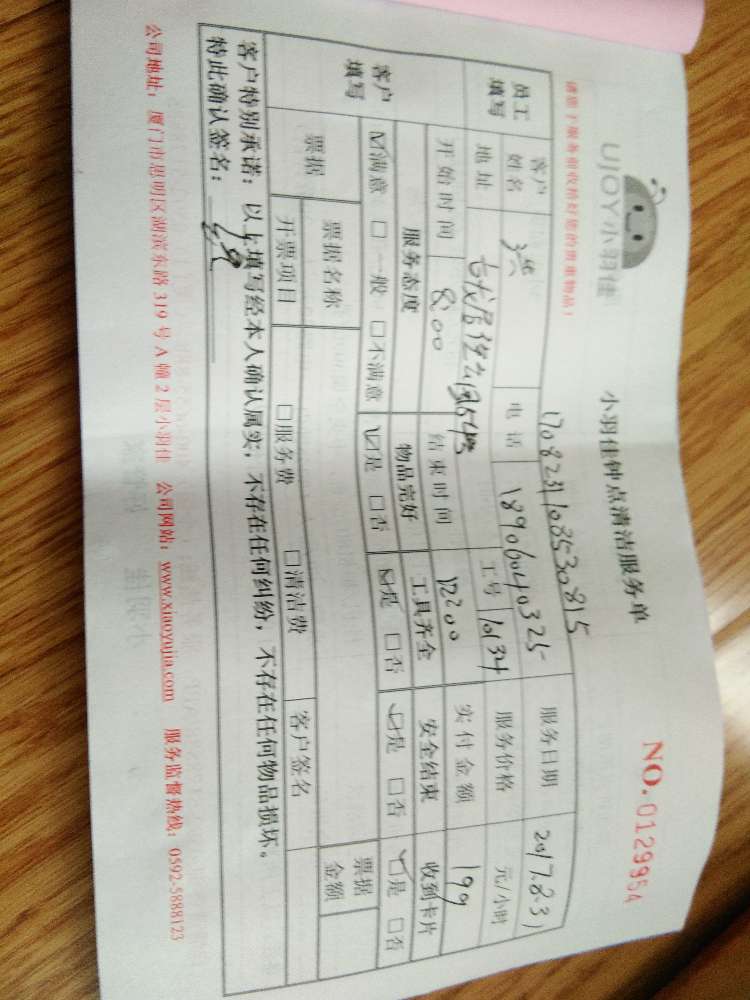 UJOY小羽佳
小羽佳钟点清洁服务单
NO.0129954
请您于服务前收拾好您的贵重物品!
170823108530815
员工填写
客户姓名 洪 电话 18906040325 服务日期 2017.8.31
地址 工号 10134 服务价格 元/小时
开始时间 8:00 结束时间 12:00 实付金额 199
客户填写
服务态度 物品完好 工具齐全 安全结束 收到卡片
☑满意 □一般 □不满意 ☑是 □否 ☑是 □否 ☑是 □否 ☑是 □否
票据
票据名称 票据金额
开票项目 □服务费 □清洁费 客户签名
客户特别承诺:以上填写经本人确认属实,不存在任何纠纷,不存在任何物品损坏。
特此确认签名:
公司地址:厦门市思明区湖滨东路319号A幢2层小羽佳 公司网站:www.xiaoyujia.com 服务监督热线:0592-5888123